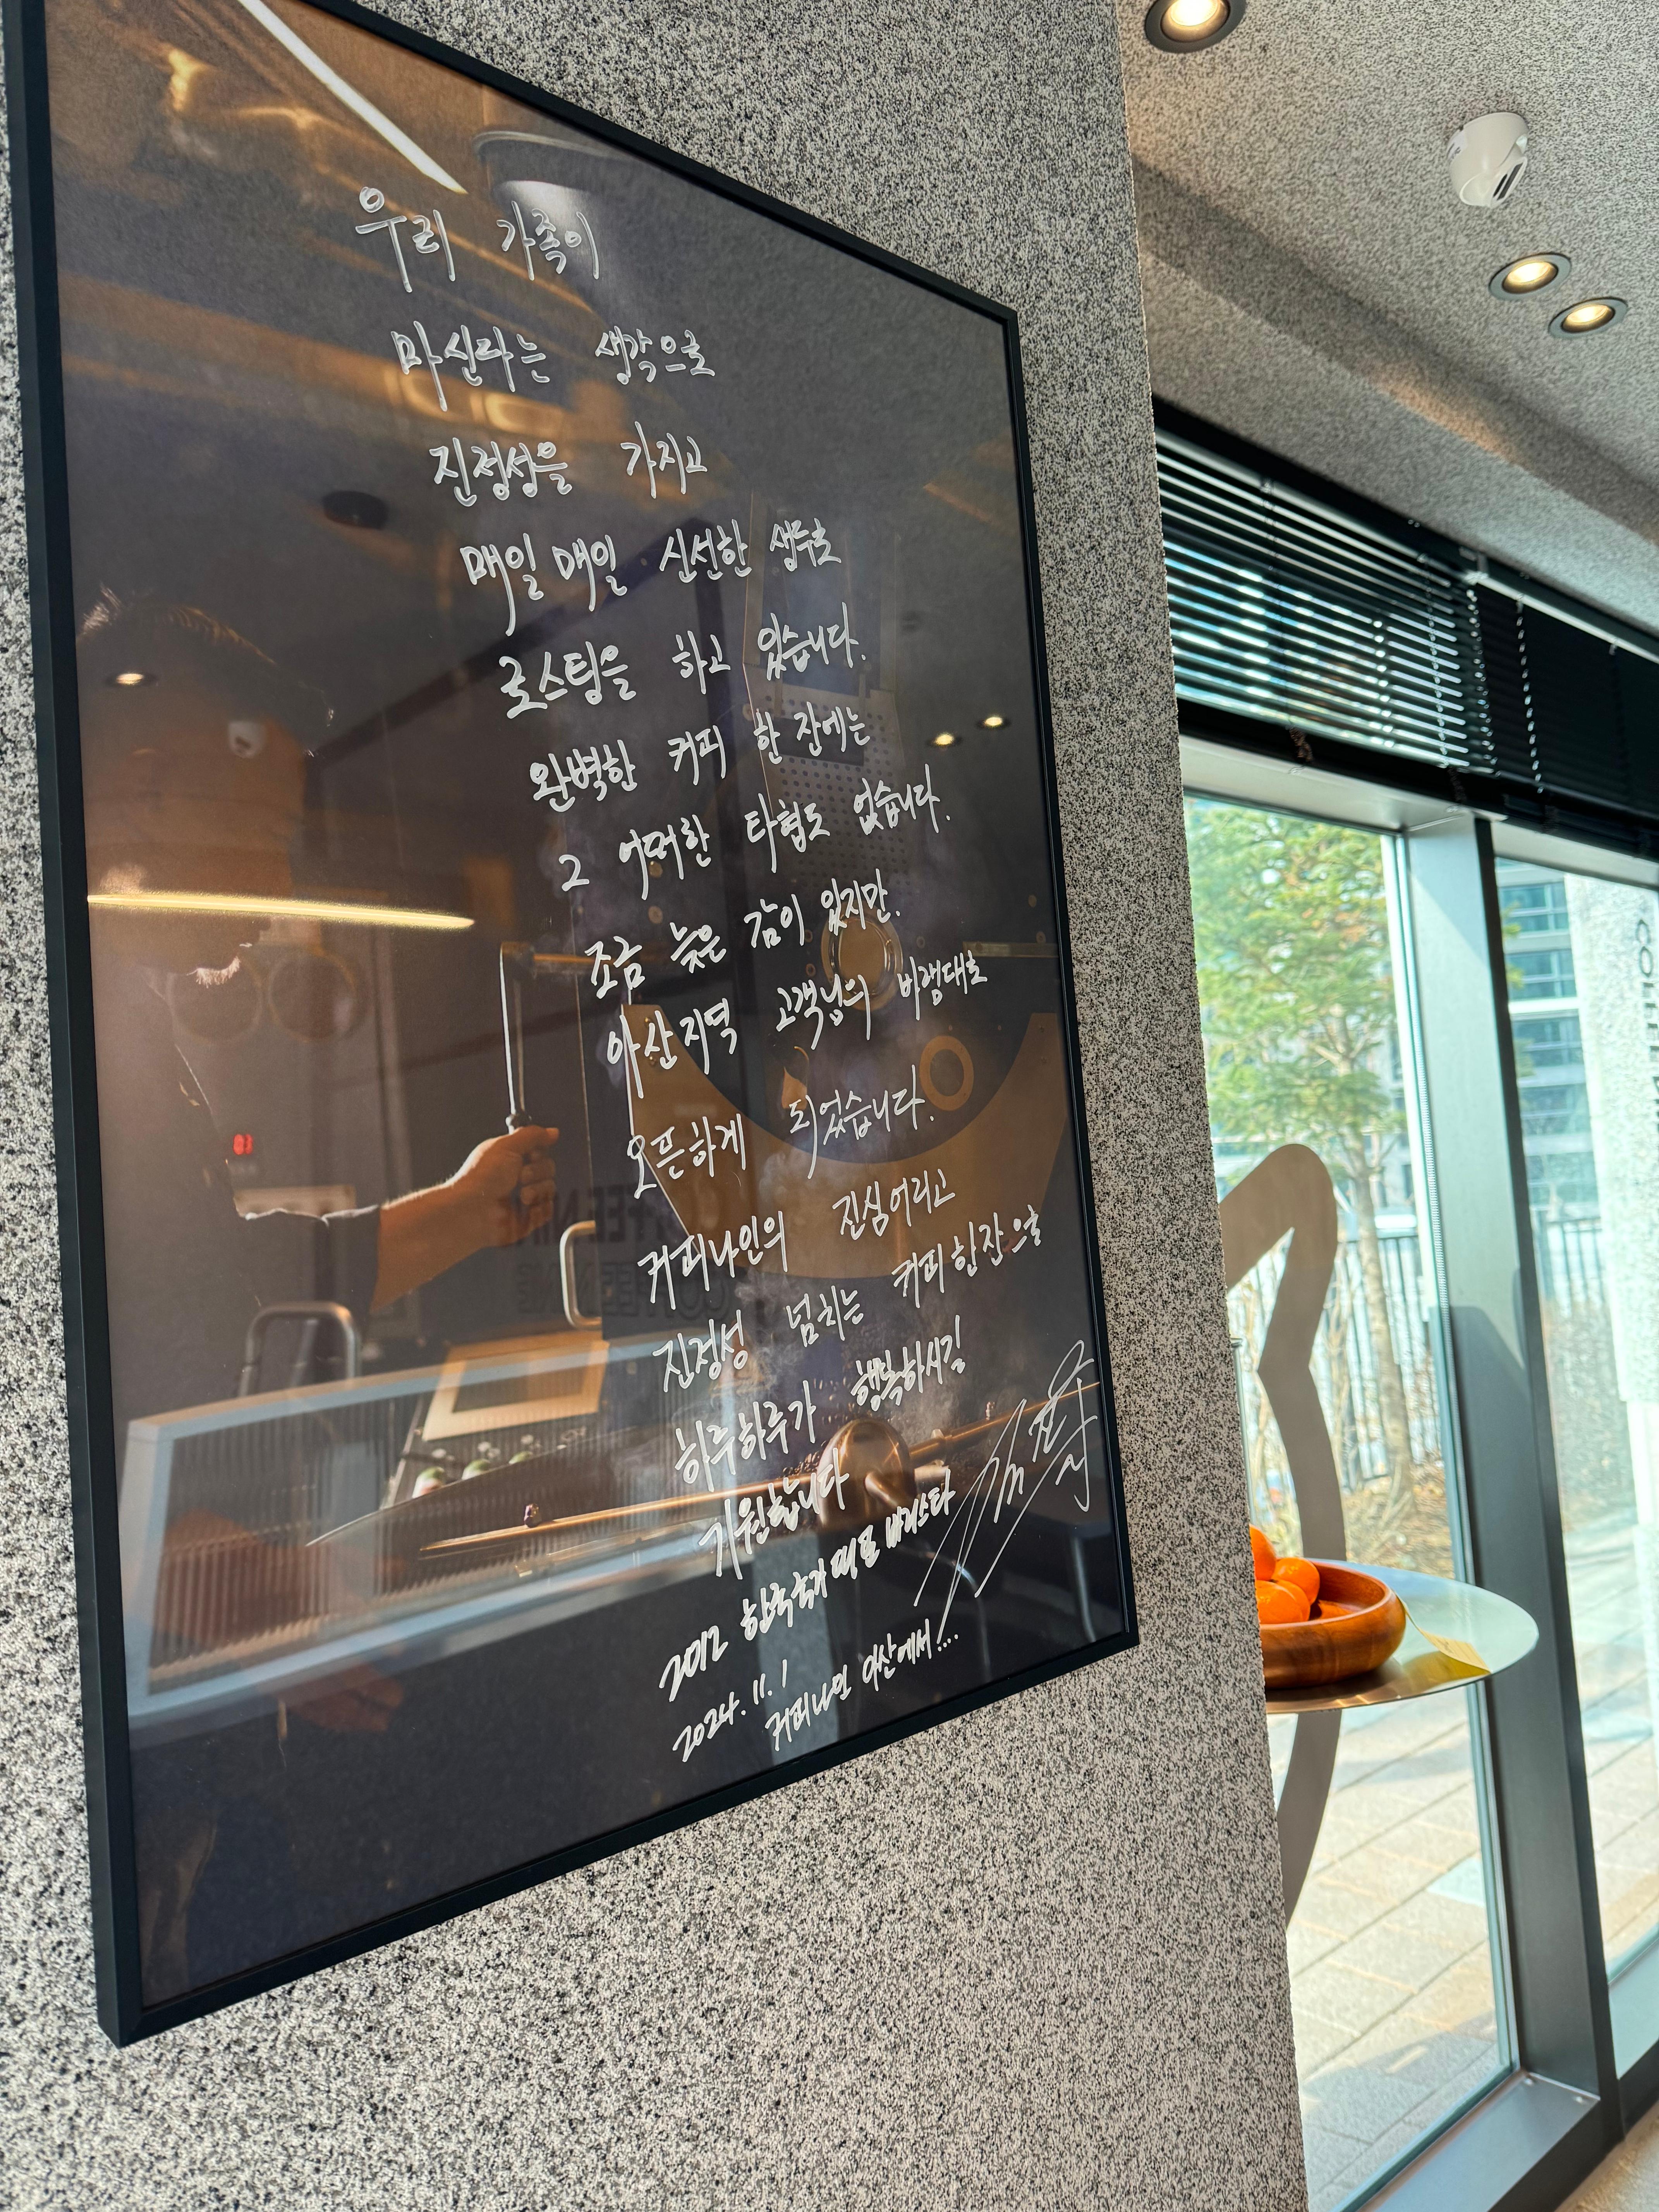 우리 가족이
마신다는 생각으로
진정성을 가지고
매일매일 신선한 생두로
로스팅을 하고 있습니다.
완벽한 커피 한 잔에는
그 어떠한 타협도 없습니다.
조금 늦은 감이 있지만.
아산지역 고객님의 바램대로
오픈하게 되었습니다.
커피나인의 진심어리고
진정성 넘치는 커피한잔으로
하루하루가 행복하시길
기원합니다
2012 한국국가대표 바리스타
2024. 11. 1
커피나인 아산에서....